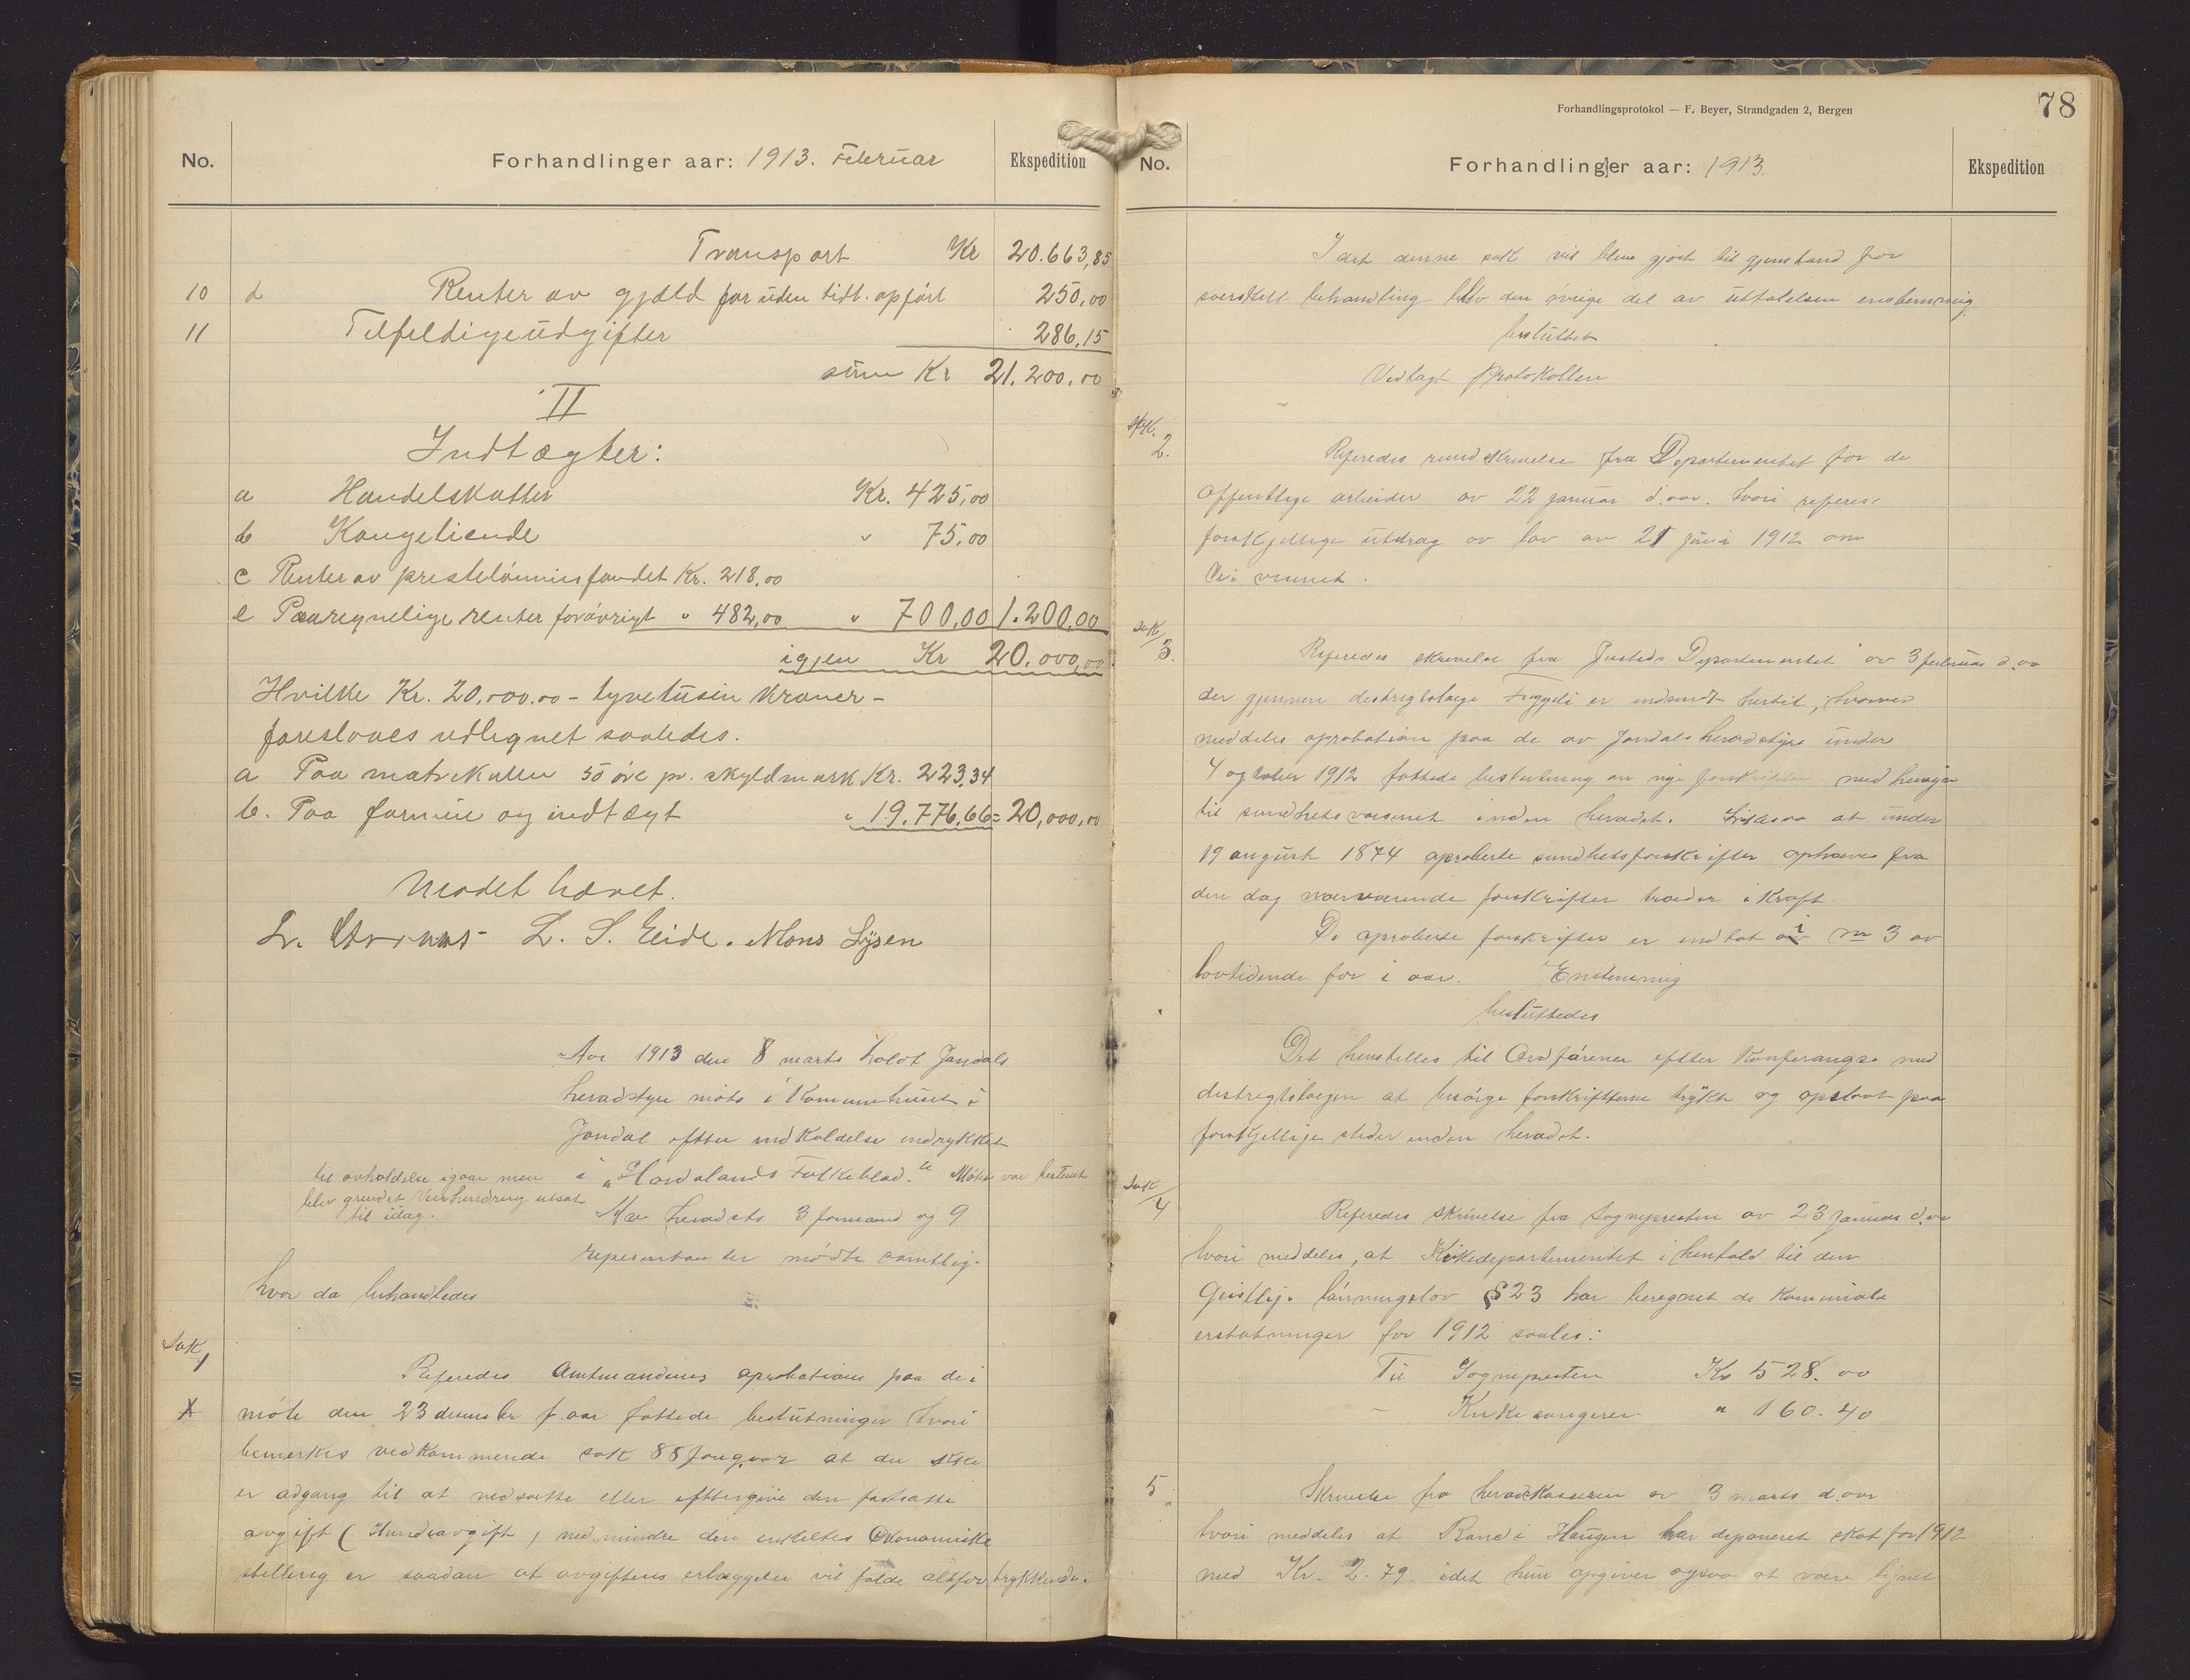 No.
Forhandlinger aar: 1913. Februar
Ekspedition
Transport Kr 20.663,85
10 d Renter av gjæld for uden tidl. opført 250,00
11 Tilfeldige udgifter 286,15
sum Kr 21.200,00
II
Indtægter:
a Handelskatter Kr. 425,00
b Kongetiende " 75,00
c Renter av prestelønningsfondet Kr. 218,00
e Paaregnelige renter forøvrigt " 482,00 " 700,00 1.200,00
igjen Kr 20.000,00
Hvilke Kr. 20,000.00 - tyvetusin kroner -
foreslaaes udlignet saaledes.
a Paa matrikullen 50 øre pr. skyldmark Kr. 223,34
b. Paa formue og indtægt " 19.776,66 = 20,000,00
Mødet hævet.
L. S. Eide. Mons Lysen
Aar 1913 den 8 marts holdt Jondals
heradstyre møte i Kommunehuset i
Jondal efter indkaldelse indrykket
i „Hordalands Folkeblad." Møtet var bestemt
til avholdelse igaar men
blev grundet veirhindring utsat
til idag.
Av heradets 3 formænd og 9
representanter mødte samtlige
hvor da behandledes
Sak 1
Referedes Amtmandens aprobation paa de i
X møte den 23 desember f. aar fattede beslutninger hvori
bemerkes vedkommende sak 88 f. aar at der ikke
er adgang til at nedsætte eller eftergive den fastsatte
avgift (Hundeavgift) med mindre den enkeltes økonomiske
stilling er saadan at avgiftens erlæggelse vil falde altfor trykkende.
Forhandlingsprotokol — F. Beyer, Strandgaden 2, Bergen
78
No.
Forhandlinger aar: 1913.
Ekspedition
Idet denne sak vil blive gjort til gjenstand for
særskilt behandling blev den øvrige del av uttalelsen enstemmig
besluttet
Vedlagt Protokollen
Sak. 2.
Referedes rundskrivelse fra Departementet for de
offentlige arbeider av 22 januar d. aar. hvori referes
forskjellige utdrag av lov av 21 juni 1912 om
Veivæsenet.
Sak 3.
Referedes skrivelse fra Justeds Departementet av 3 februar d. aa
der gjennem destrigtslæge er indsendt hertil, hvorved
meddeles aprobation paa de av Jondals heradstyre under
4 ogtober 1912 fattede beslutning om nye forskrifter med hensyn
til sundhetsvæsenet inden heradet. Likesaa at under
19 august 1874 aproberte sundhetsforskrifter ophæves fra
den dag nærværende forskrifter træder i kraft.
De aproberte forskrifter er indtat i nr 3 av
lovtidende for i aar. Enstemmig
besluttedes
Det henstilles til Ordføreren efter Konferangse med
destrigtslægen at besørge forskrifterne trykte og opslaat paa
forskjellige steder inden heradet.
Sak 4
Referedes skrivelse fra Sognepresten av 23 januar d. aa
hvori meddeles, at Kirkedepartementet i henhold til den
Geistlige lønningslov § 23 har beregnet de Kommunale
erstatninger for 1912 saales:
Til Sognepresten Kr 528.00
- Kirkesangeren " 160.40
5
Skrivelse fra heradkasseren av 3 marts d. aar
hvori meddeles at Randi Haugen har deponeret skat for 1912
med Kr. 2.79. idet hun opgiver ogsaa at være lignet